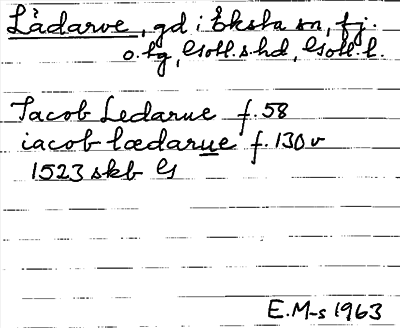 Lådarve, gd i Eksta sn, fj.
o. tg, Gotl. s. hd, Gotl. l.
Jacob Ledarue f. 58
iacob lædarue f. 130 v
1523 skb G
E. M-s 1963